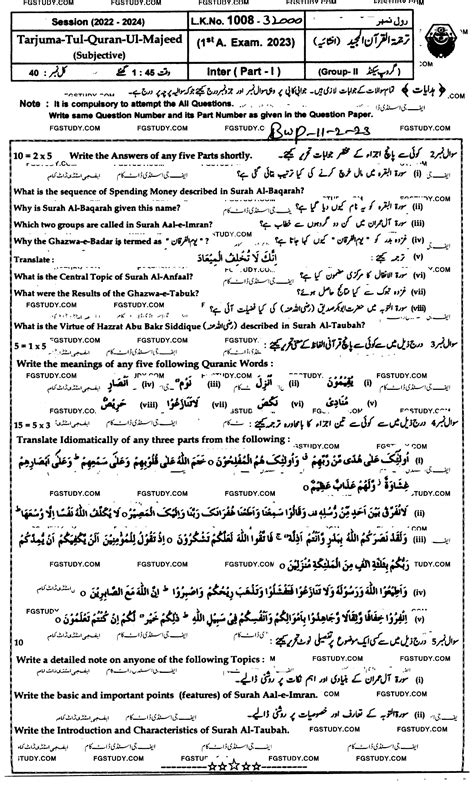 Session (2022 - 2024)
L.K.No. 1008 - 32000
رول نمبر
Tarjuma-Tul-Quran-Ul-Majeed
(1st A. Exam. 2023)
ترجمۃ القرآن المجید (انشائیہ)
(Subjective)
کل نمبر : 40
وقت 1 : 45 گھنٹے
Inter ( Part - I )
(Group- II گروپ سیکنڈ)
﴿ ہدایات ﴾
Note : It is compulsory to attempt the All Questions.
Write same Question Number and its Part Number as given in the Paper.
FGSTUDY.COM
BWP-11-2-23
10 = 2 x 5 Write the Answers of any five Parts shortly. سوال نمبر 2 کوئی سے پانچ اجزاء کے مختصر جوابات تحریر کیجئے۔
(i) سورۃ البقرہ میں مال خرچ کرنے کی کیا ترتیب بتائی گئی ہے؟
What is the sequence of Spending Money described in Surah Al-Baqarah?
Why is Surah Al-Baqarah given this name? (ii) سورۃ البقرہ کو یہ نام کیوں دیا گیا ہے؟
Which two groups are called in Surah Aal-e-Imran? (iii) سورۃ آل عمران میں کن دو گروہوں سے خطاب ہے؟
Why the Ghazwa-e-Badar is termed as "یوم الفرقان" ? (iv) غزوہ بدر کو "یوم الفرقان" کیوں کہا جاتا ہے؟
Translate : اِنَّکَ لَا تُخْلِفُ الْمِیْعَادَ (v) ترجمہ کیجئے :
What is the Central Topic of Surah Al-Anfaal? (vi) سورۃ الانفال کا مرکزی مضمون کیا ہے؟
What were the Results of the Ghazwa-e-Tabuk? (vii) غزوہ تبوک سے کیا نتائج حاصل ہوئے؟
(viii) سورۃ التوبہ میں حضرت ابوبکر صدیق (رضی اللہ عنہ) کی کیا فضیلت آئی ہے؟
What is the Virtue of Hazrat Abu Bakr Siddique (رضی اللہ عنہ) described in Surah Al-Taubah?
5 = 1 x 5 سوال نمبر 3 درج ذیل میں سے کوئی سے پانچ قرآنی الفاظ کے معنی تحریر کیجئے۔
Write the meanings of any five following Quranic Words :
(i) یُقِیْمُوْنَ (ii) اُنْزِلَ (iii) نَوْمٌ (iv) اَنْصَارٍ
(v) مُنَادِیًا (vi) نَکَصَ (vii) لَاتَنَازَعُوْا (viii) حَرِیْصٌ
15 = 5 x 3 سوال نمبر 4 درج ذیل میں سے کوئی سے تین اجزاء کا بامحاورہ ترجمہ کیجئے۔
Translate Idiomatically of any three parts from the following :
(i) اُولٰٓئِکَ عَلٰی ھُدًی مِّنْ رَّبِّھِمْ وَاُولٰٓئِکَ ھُمُ الْمُفْلِحُوْنَ o خَتَمَ اللّٰہُ عَلٰی قُلُوْبِھِمْ وَعَلٰی سَمْعِھِمْ وَعَلٰٓی اَبْصَارِھِمْ
غِشَاوَۃٌ وَّلَھُمْ عَذَابٌ عَظِیْمٌ o
(ii) لَانُفَرِّقُ بَیْنَ اَحَدٍ مِّنْ رُّسُلِہٖ وَقَالُوْا سَمِعْنَا وَاَطَعْنَا غُفْرَانَکَ رَبَّنَا وَاِلَیْکَ الْمَصِیْرُ o لَا یُکَلِّفُ اللّٰہُ نَفْسًا اِلَّا وُسْعَھَا
(iii) وَلَقَدْ نَصَرَکُمُ اللّٰہُ بِبَدْرٍ وَّاَنْتُمْ اَذِلَّۃٌ فَاتَّقُوا اللّٰہَ لَعَلَّکُمْ تَشْکُرُوْنَ o اِذْ تَقُوْلُ لِلْمُؤْمِنِیْنَ اَلَنْ یَّکْفِیَکُمْ اَنْ یُّمِدَّکُمْ
رَبُّکُمْ بِثَلٰثَۃِ اٰلٰفٍ مِّنَ الْمَلٰٓئِکَۃِ مُنْزَلِیْنَ o
(iv) وَاَطِیْعُوا اللّٰہَ وَرَسُوْلَہٗ وَلَا تَنَازَعُوْا فَتَفْشَلُوْا وَتَذْھَبَ رِیْحُکُمْ وَاصْبِرُوْا اِنَّ اللّٰہَ مَعَ الصَّابِرِیْنَ o
(v) اِنْفِرُوْا خِفَافًا وَّثِقَالًا وَّجَاھِدُوْا بِاَمْوَالِکُمْ وَاَنْفُسِکُمْ فِیْ سَبِیْلِ اللّٰہِ ذٰلِکُمْ خَیْرٌ لَّکُمْ اِنْ کُنْتُمْ تَعْلَمُوْنَ o
10 سوال نمبر 5 درج ذیل میں سے کسی ایک موضوع پر تفصیلی نوٹ تحریر کیجئے :
Write a detailed note on anyone of the following Topics :
(i) سورۃ آل عمران کے بنیادی اور اہم نکات پر روشنی ڈالیے۔
Write the basic and important points (features) of Surah Aal-e-Imran.
(ii) سورۃ التوبہ کے تعارف اور خصوصیات پر روشنی ڈالیے۔
Write the Introduction and Characteristics of Surah Al-Taubah.
FGSTUDY.COM